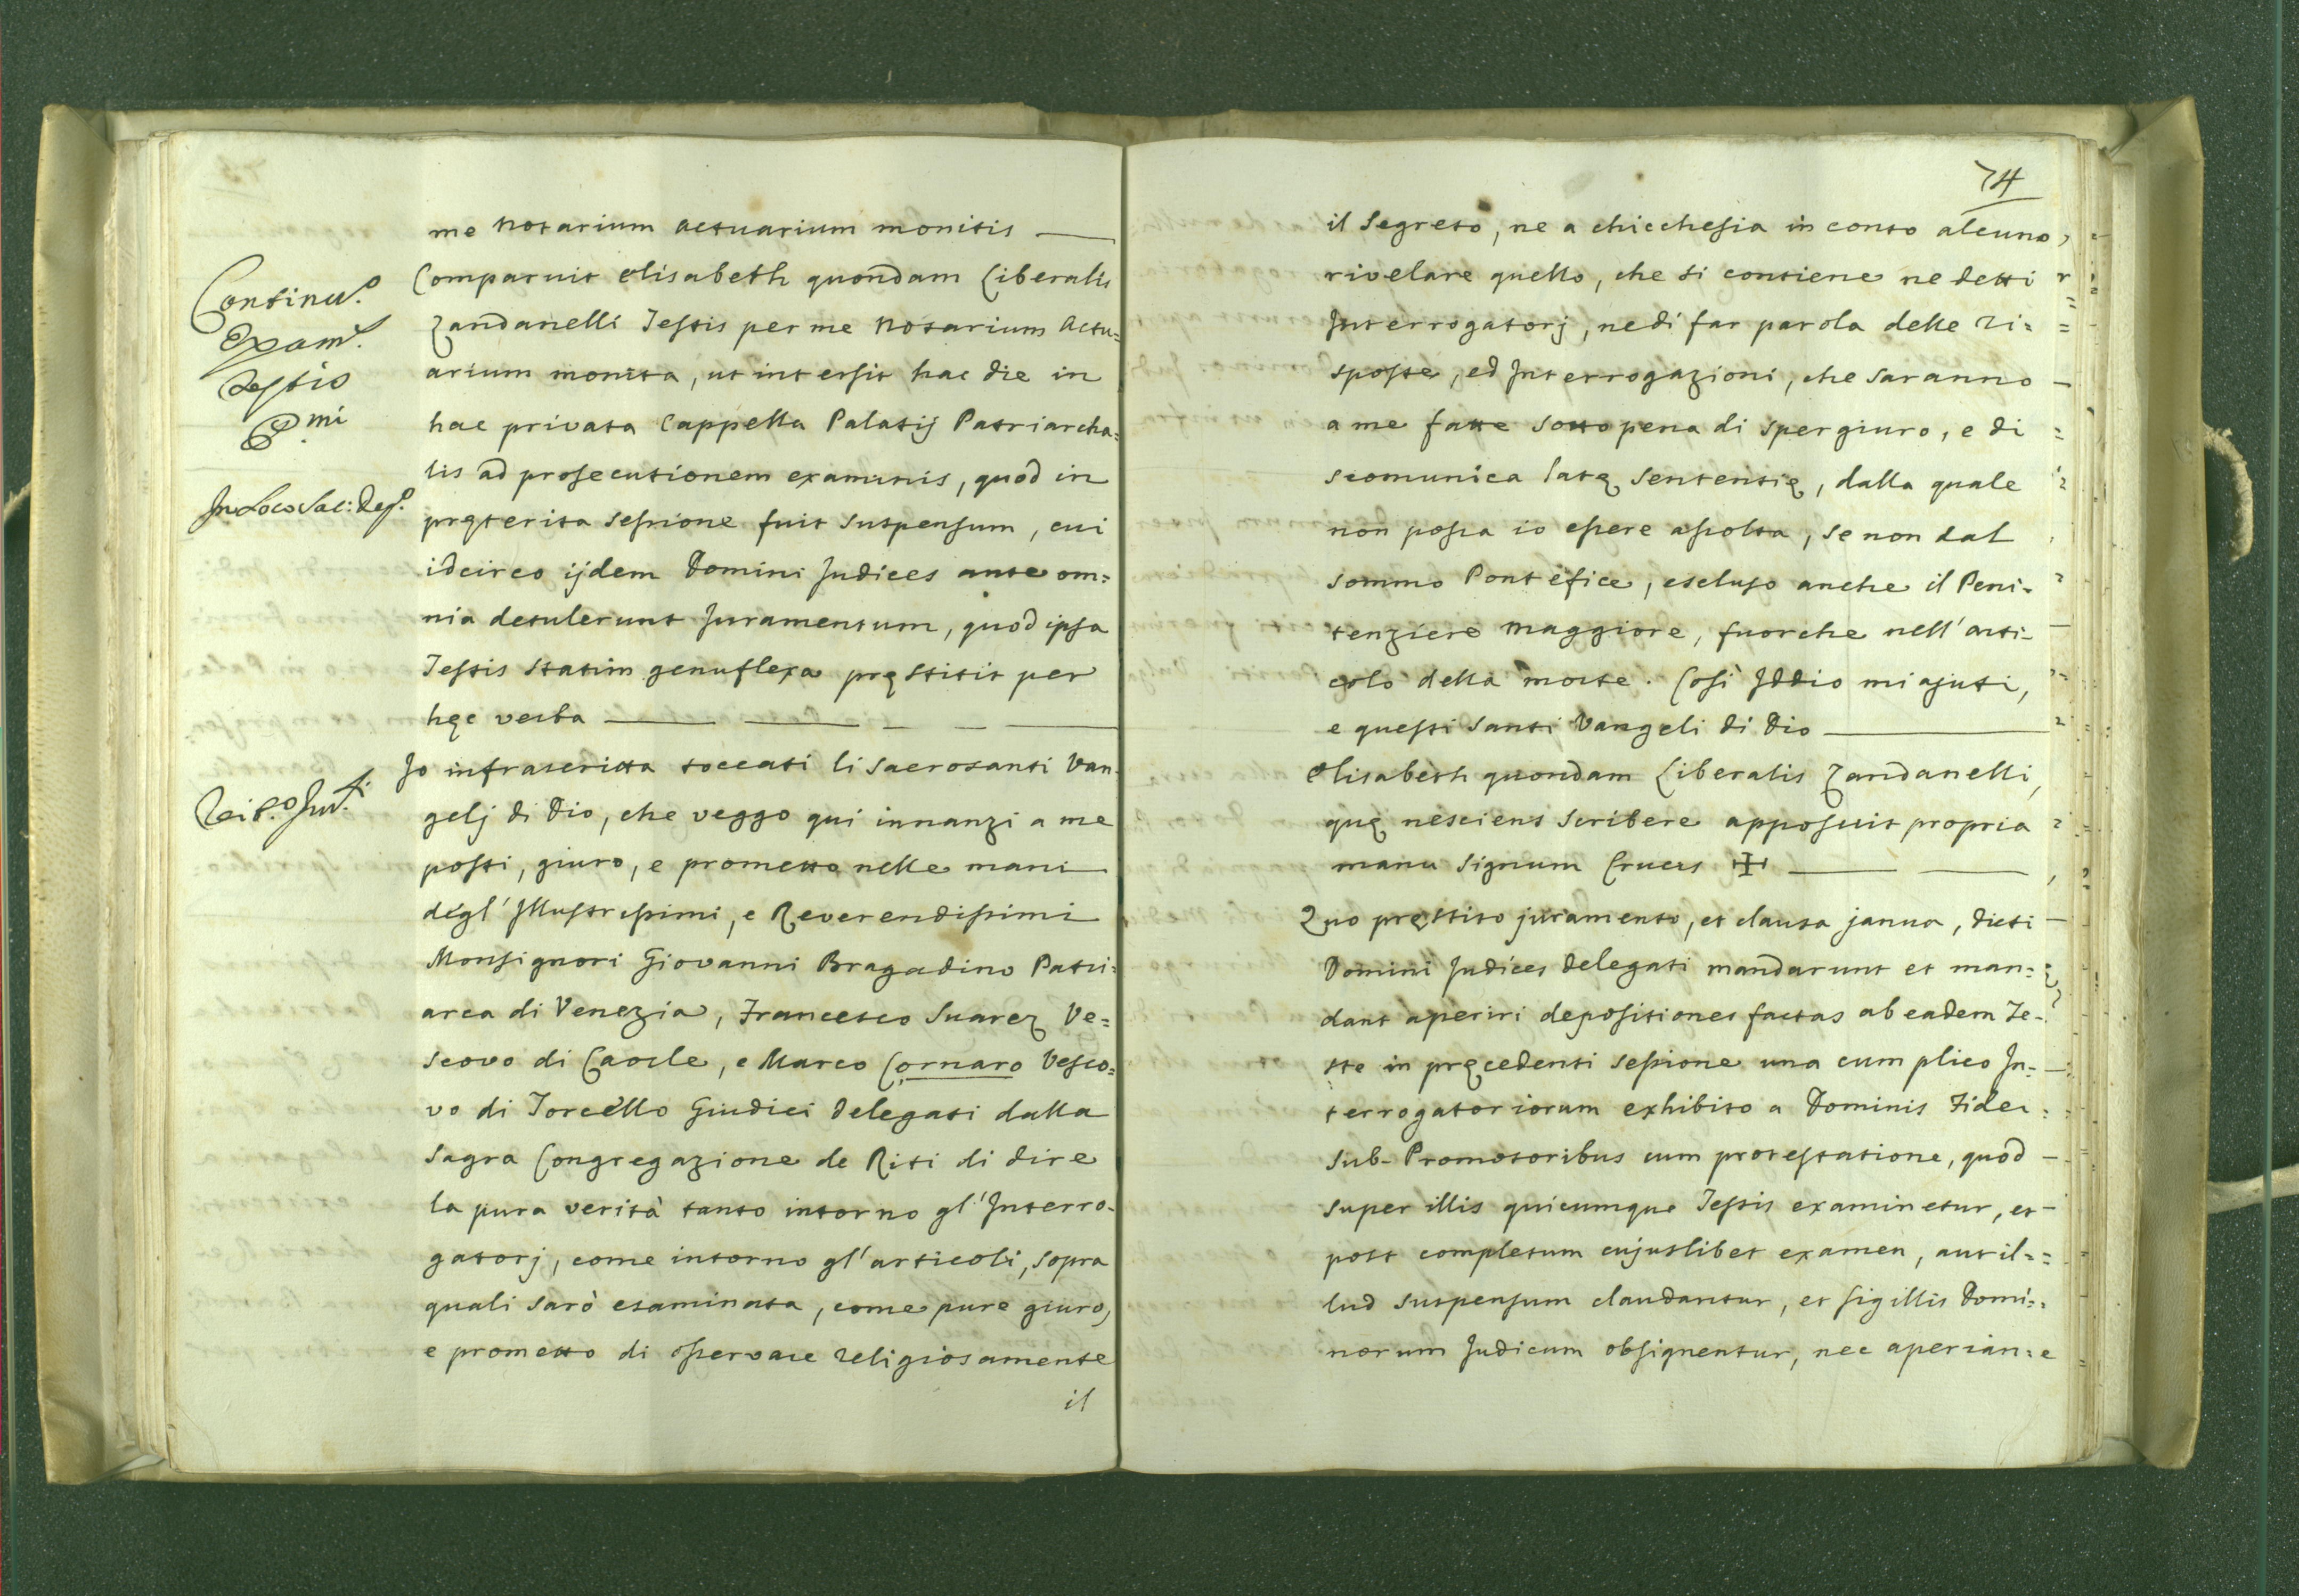 me Notarium Actuarium monitis
Continu.º
Exam.
Testis
P.mi
Comparuit Elisabeth quondam Liberalis
Zandanelli Testis per me Notarium Actu=
arium monita, ut intersit hac die in
hac privata Cappella Palatij Patriarcha=
lis ad prosecutionem examinis, quod in
In Loco Sac: Dep.º
pręterita sessione fuit suspensum, cui
idcirco ijdem Domini Judices ante om=
nia detulerunt Juramentum, quod ipsa
Testis statim genuflexa pręstitit per
hęc verba
Jo infrascritta toccati li sacrosanti Van=
gelj di Dio, che veggo qui innanzi a me
posti, giuro, e prometto nelle mani
degl' Illustrissimi, e Reverendissimi
Monsignori Giovanni Bragadino Patri=
arca di Venezia, Francesco Suarez Ve=
scovo di Caorle, e Marco Cornaro Vesco=
vo di Torcello Giudici delegati dalla
Sagra Congregazione de Riti di dire
la pura verità tanto intorno gl' Interro=
gatorj, come intorno gl' articoli, sopra
quali sarò esaminata, come pure giuro,
e prometto di osservare religiosamente
il
74
il Segreto, ne a chicchesia in conto alcuno
rivelare quello, che si contiene ne detti
Interrogatorj, ne di far parola delle ri=
sposte, ed Interrogazioni, che saranno
a me fatte sotto pena di spergiuro, e di
scomunica latę Sententię, dalla quale
non possa io essere assolta, se non dal
sommo Pontefice, escluso anche il Peni=
tenziere Maggiore, fuorche nell' arti=
colo della morte. Così Iddio mi ajuti,
e questi Santi Vangeli di Dio
Elisabeth quondam Liberalis Zandanelli,
quę nesciens scribere apposuit propria
manu signum Crucis ✠
Quo pręstito juramento, et clausa janua, dicti
Domini Judices delegati mandarunt et man=
dant aperiri depositiones factas ab eadem Te=
ste in pręcedenti sessione una cum plico In=
terrogatoriorum exhibito a Dominis Fidei
Sub-Promotoribus cum protestatione, quod
super illis quicumque Testis examinetur, et
post completum cujuslibet examen, aut il=
lud suspensum claudantur, et sigillis Domi=
norum Judicum obsignentur, nec aperian=